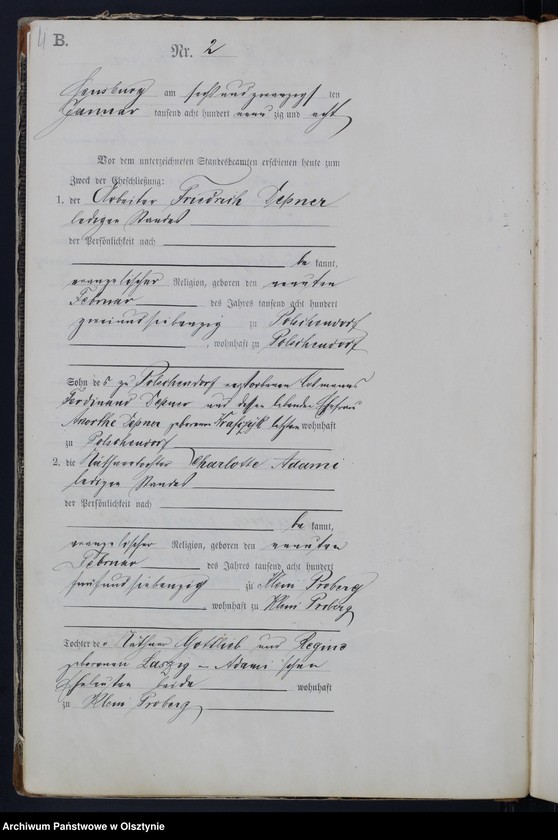 B.
Nr. 2
Sensburg am sechsundzwanzigsten
Januar tausend acht hundert neunzig und acht
Vor dem unterzeichneten Standesbeamten erschienen heute zum
Zweck der Eheschließung:
1. der Arbeiter Friedrich Depner
ledigen Standes
der Persönlichkeit nach
be kannt,
evangelischer Religion, geboren den neunten
Februar des Jahres tausend acht hundert
zweiundsiebenzig zu Polschendorf
, wohnhaft zu Polschendorf
Sohn des zu Polschendorf verstorbenen
Ferdinand Depner und dessen lebenden Ehefrau
Depner geborene letztere wohnhaft
zu Polschendorf
2. die Käthnertochter Charlotte Adami
ledigen Standes
der Persönlichkeit nach
be kannt,
evangelischer Religion, geboren den neunten
Februar des Jahres tausend acht hundert
fünfundsiebenzig zu Klein Proberg
, wohnhaft zu Klein Proberg
Tochter der Käthner Gottlieb und Regine
geborenen Laszig – Adami'schen
Eheleuten beide wohnhaft
zu Klein Proberg
Archiwum Państwowe w Olsztynie